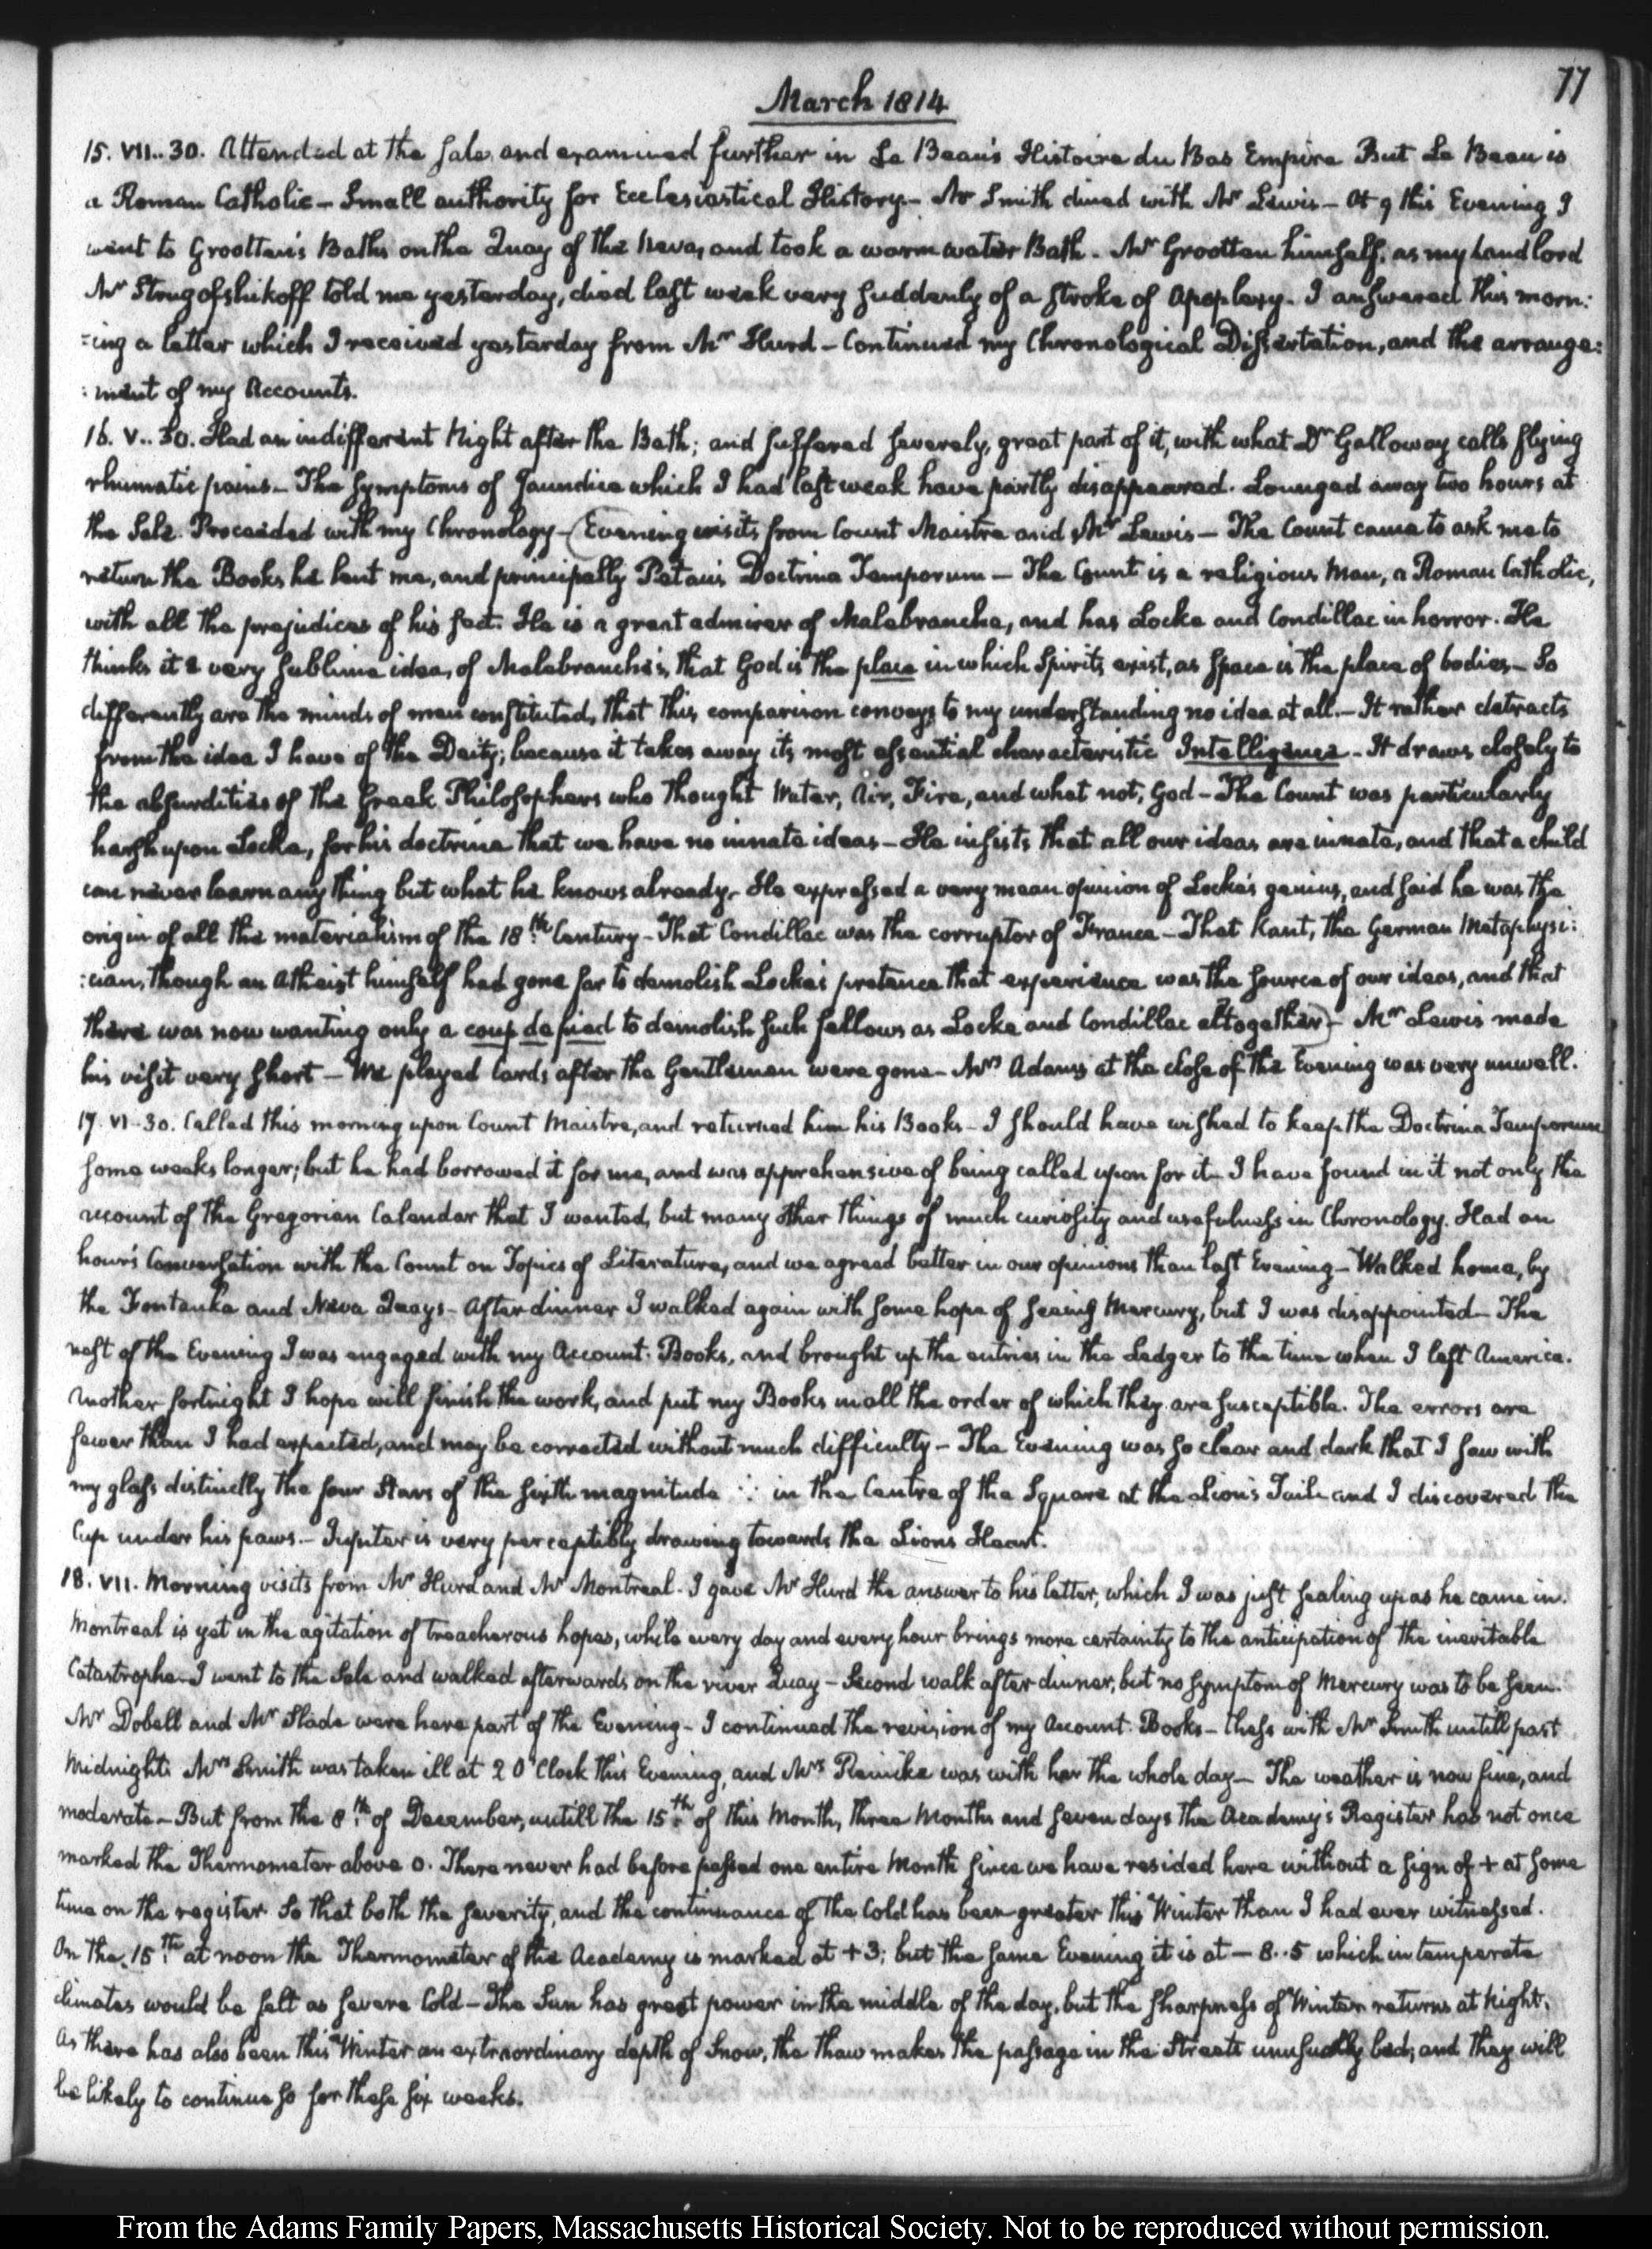 77
March 1814
15. VII..30. Attended at the sale, and examined further in Le Beau's Histoire du Bas Empire But Le Beau is
a Roman Catholic – Small authority for Ecclesiastical History – Mr Smith dined with Mr Lewis – At 9 this Evening I
went to Grootten's Baths on the Quay of the Neva, and took a warm water Bath – Mr Grootten himself, as my Landlord
Mr Strogofshikoff told me yesterday, died last week very suddenly of a stroke of Apoplexy – I answered this morn:
:ing a letter which I received yesterday from Mr Hurd – Continued my Chronological Dissertation, and the arrange:
:ment of my Accounts.
16. V..30. Had an indifferent Night after the Bath; and suffered severely, great part of it, with what Dr Galloway calls flying
rhumatic pains – The symptoms of Jaundice which I had last week have partly disappeared. Lounged away two hours at
the Sale. Proceeded with my Chronology – (Evening visits from Count Maistre and Mr Lewis – The Count came to ask me to
return the Books he lent me, and principally Petau's Doctrina Temporum – The Count is a religious Man, a Roman Catholic,
with all the prejudices of his sect. He is a great admirer of Malebranche, and has Locke and Condillac in horror. He
thinks it a very sublime idea, of Malebranche's, that God is the place in which Spirits exist, as space is the place of bodies – So
differently are the minds of men constituted, that this comparison conveys to my understanding no idea at all – It rather detracts
from the idea I have of the Deity; because it takes away its most essential characteristic Intelligence – It draws closely to
the absurdities of the Greek Philosophers who thought Water, Air, Fire, and what not, God – The Count was particularly
harsh upon Locke, for his doctrine that we have no innate ideas – He insists that all our ideas are innate, and that a child
can never learn any thing but what he knows already – He expressed a very mean opinion of Locke's genius, and said he was the
origin of all the materialism of the 18th Century – That Condillac was the corruptor of France – That Kant, the German Metaphysi:
:cian, though an Atheist himself had gone far to demolish Locke's pretence that experience was the source of our ideas, and that
there was now wanting only a coup de pied to demolish such fellows as Locke and Condillac altogether) – Mr Lewis made
his visit very short – We played Cards after the Gentlemen were gone – Mrs Adams at the close of the Evening was very unwell.
17. VI..30. Called this morning upon Count Maistre, and returned him his Books – I should have wished to keep the Doctrina Temporum
some weeks longer; but he had borrowed it for me, and was apprehensive of being called upon for it – I have found in it not only the
account of the Gregorian Calendar that I wanted, but many other things of much curiosity and usefulness in Chronology. Had an
hour's Conversation with the Count on Topics of Literature, and we agreed better in our opinions than last Evening – Walked home, by
the Fontanka and Neva Quays – After dinner I walked again with some hope of seeing Mercury, but I was disappointed – The
rest of the Evening I was engaged with my Account-Books, and brought up the entries in the Ledger to the time when I left America.
Another fortnight I hope will finish the work, and put my Books in all the order of which they are susceptible. The errors are
fewer than I had expected, and may be corrected without much difficulty – The Evening was so clear and dark that I saw with
my glass distinctly the four Stars of the sixth magnitude in the Centre of the Square at the Lion's Tail and I discovered the
Cup under his paws – Jupiter is very perceptibly drawing towards the Lion's Heart.
18. VII. Morning visits from Mr Hurd and Mr Montreal – I gave Mr Hurd the answer to his letter, which I was just sealing up as he came in.
Montreal is yet in the agitation of treacherous hopes, while every day and every hour brings more certainty to the anticipation of the inevitable
Catastrophe – I went to the Sale and walked afterwards on the river Quay – Second walk after dinner, but no symptom of Mercury was to be seen.
Mr Dobell and Mr Slade were here part of the Evening – I continued the revision of my Account-Books – Chess with Mr Smith untill past
Midnight. Mrs Smith was taken ill at 2 O'Clock this Evening, and Mrs Reinike was with her the whole day – The weather is now fine, and
moderate – But from the 8th of December, untill the 15th of this Month, three Months and seven days the Academy's Register has not once
marked the Thermometer above 0. There never had before passed one entire Month since we have resided here without a sign of + at some
time on the register So that both the severity, and the continuance of the Cold has been greater this Winter than I had ever witnessed.
On the 15th at noon the Thermometer of the Academy is marked at +3; but the same Evening it is at – 8..5 which in temperate
climates would be felt as severe Cold – The Sun has great power in the middle of the day, but the sharpness of Winter returns at Night.
As there has also been this Winter an extraordinary depth of Snow, the thaw makes the passage in the Streets unusually bad; and they will
be likely to continue so for these six weeks.
From the Adams Family Papers, Massachusetts Historical Society. Not to be reproduced without permission.